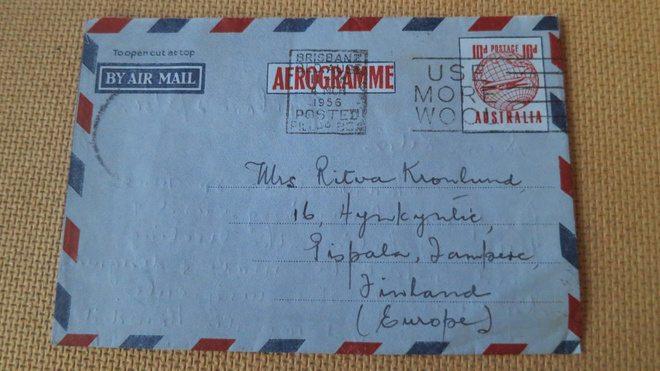 To open cut at top
BY AIR MAIL
AEROGRAMME
BRISBANE
1956
POSTED
USE
MORE
WOO
10d POSTAGE 10d
AUSTRALIA
Mrs Ritva Kronlund
16, Hynkyntie,
Pispala, Tampere,
Finland
(Europe)